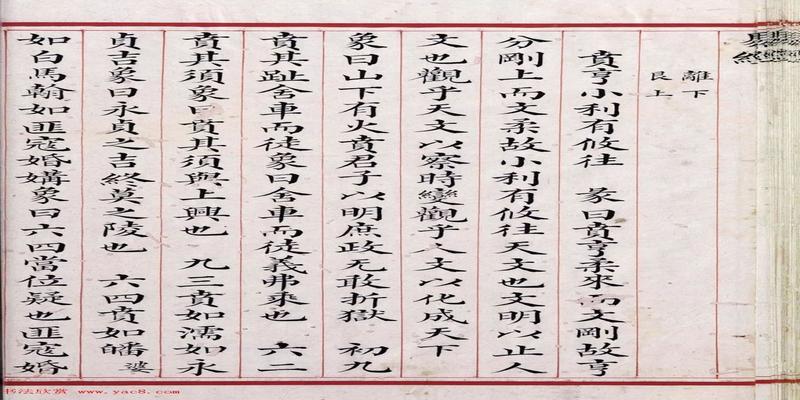 離下
艮上
賁亨小利有攸往 彖曰賁亨柔來而文剛故亨
分剛上而文柔故小利有攸往天文也文明以止人
文也觀乎天文以察時變觀乎人文以化成天下
象曰山下有火賁君子以明庶政无敢折獄 初九
賁其趾舍車而徒象曰舍車而徒義弗乘也 六二
賁其須象曰賁其須與上興也 九三賁如濡如永
貞吉象曰永貞之吉終莫之陵也 六四賁如皤 婆
如白馬翰如匪寇婚媾象曰六四當位疑也匪寇婚
书法欣赏 www.yac8.com